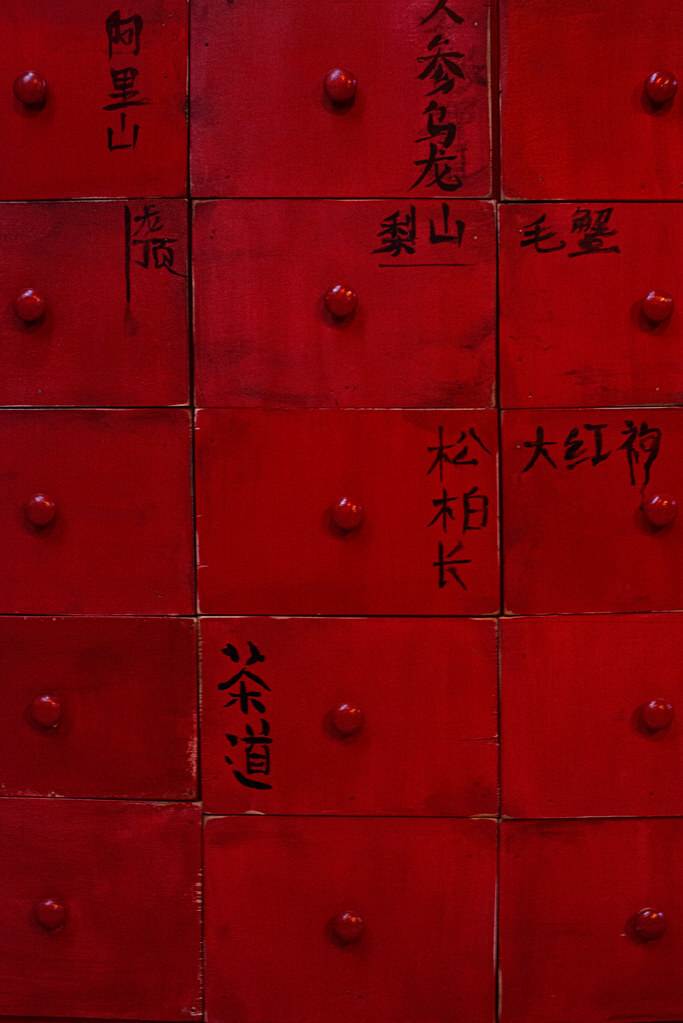 阿里山
人参乌龙
龙顶
梨山
毛蟹
松柏长
大红袍
茶道